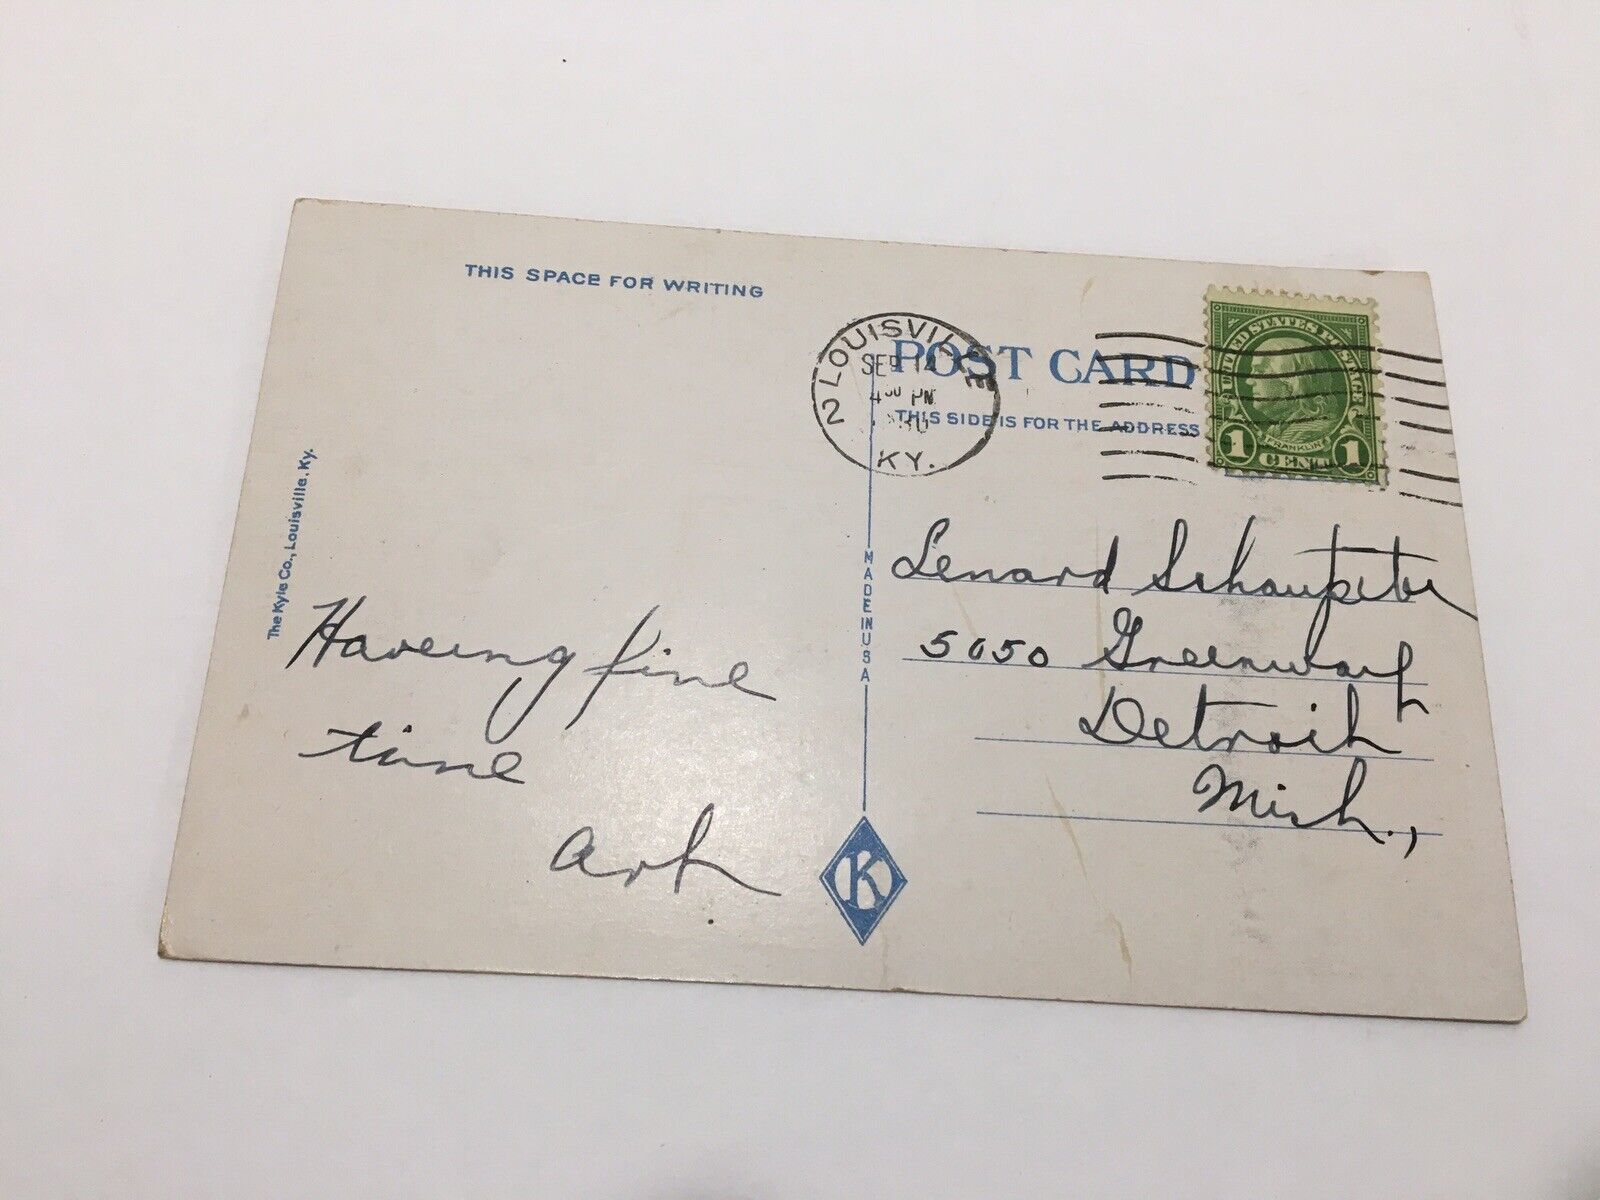 THIS SPACE FOR WRITING
The Kyle Co., Louisville, Ky.
Haveing fine
time
Art
LOUISVILLE
SEP 14
4 30 PM
2
KY.
POST CARD
THIS SIDE IS FOR THE ADDRESS
UNITED STATES POSTAGE
FRANKLIN
1 CENT 1
MADE IN USA
Lenard
5050
Detroit
Mich.,
K